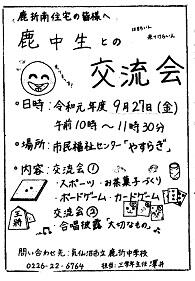 鹿折南住宅の皆様へ
鹿中生との
交流会
・日時：令和元年度 9月27日(金)
午前10時～11時30分
・場所：市民福祉センター“やすらぎ”
・内容：交流会①
・スポーツ・お菓子づくり
・ボードゲーム・カードゲーム
交流会②
合唱披露「大切なもの」
王将
問い合わせ先：気仙沼市立鹿折中学校
0226-22-6764 担当：三学年主任 澤井